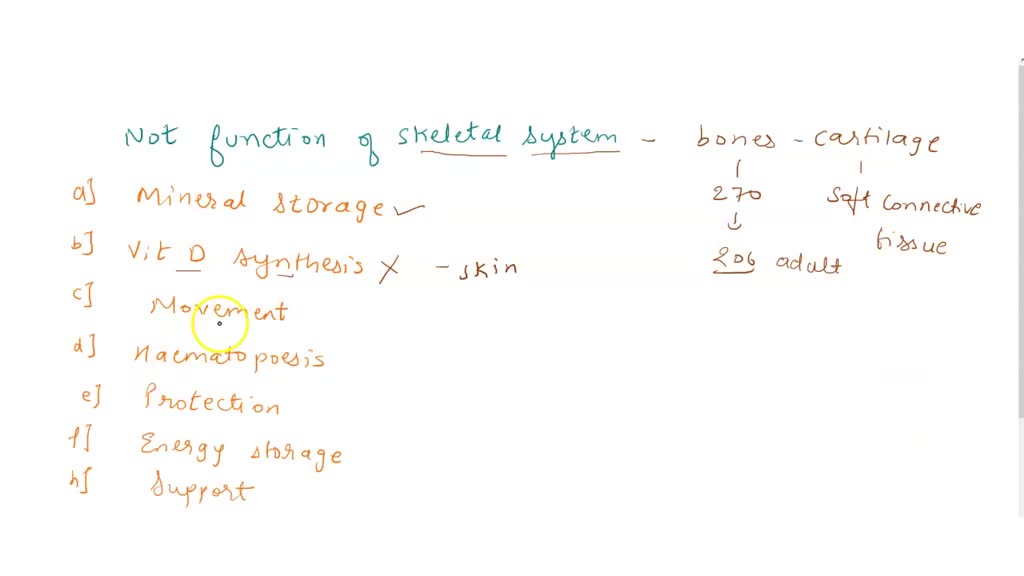 Not function of skeletal system - bones - cartilage
a] Mineral storage ✓
270
Soft connective tissue
b] Vit D synthesis X - skin
206 adult
c] Movement
d] Haematopoesis
e] Protection
f] Energy storage
h] Support